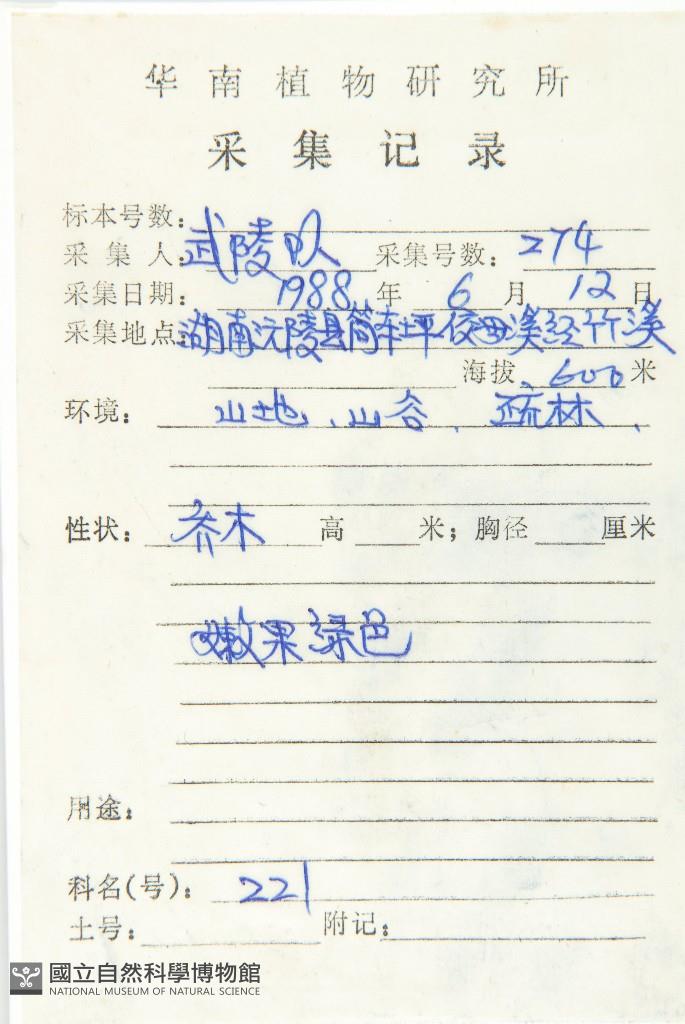 华南植物研究所
采集记录
标本号数:
采集人: 武陵队 采集号数: 274
采集日期: 1988 年 6 月 12 日
采集地点: 湖南沅陵县 坪 溪经竹溪
海拔 600 米
环境: 山地、山谷、疏林、
性状: 乔木 高 米; 胸径 厘米
嫩果绿色
用途:
科名(号): 221
土号: 附记:
國立自然科學博物館
NATIONAL MUSEUM OF NATURAL SCIENCE